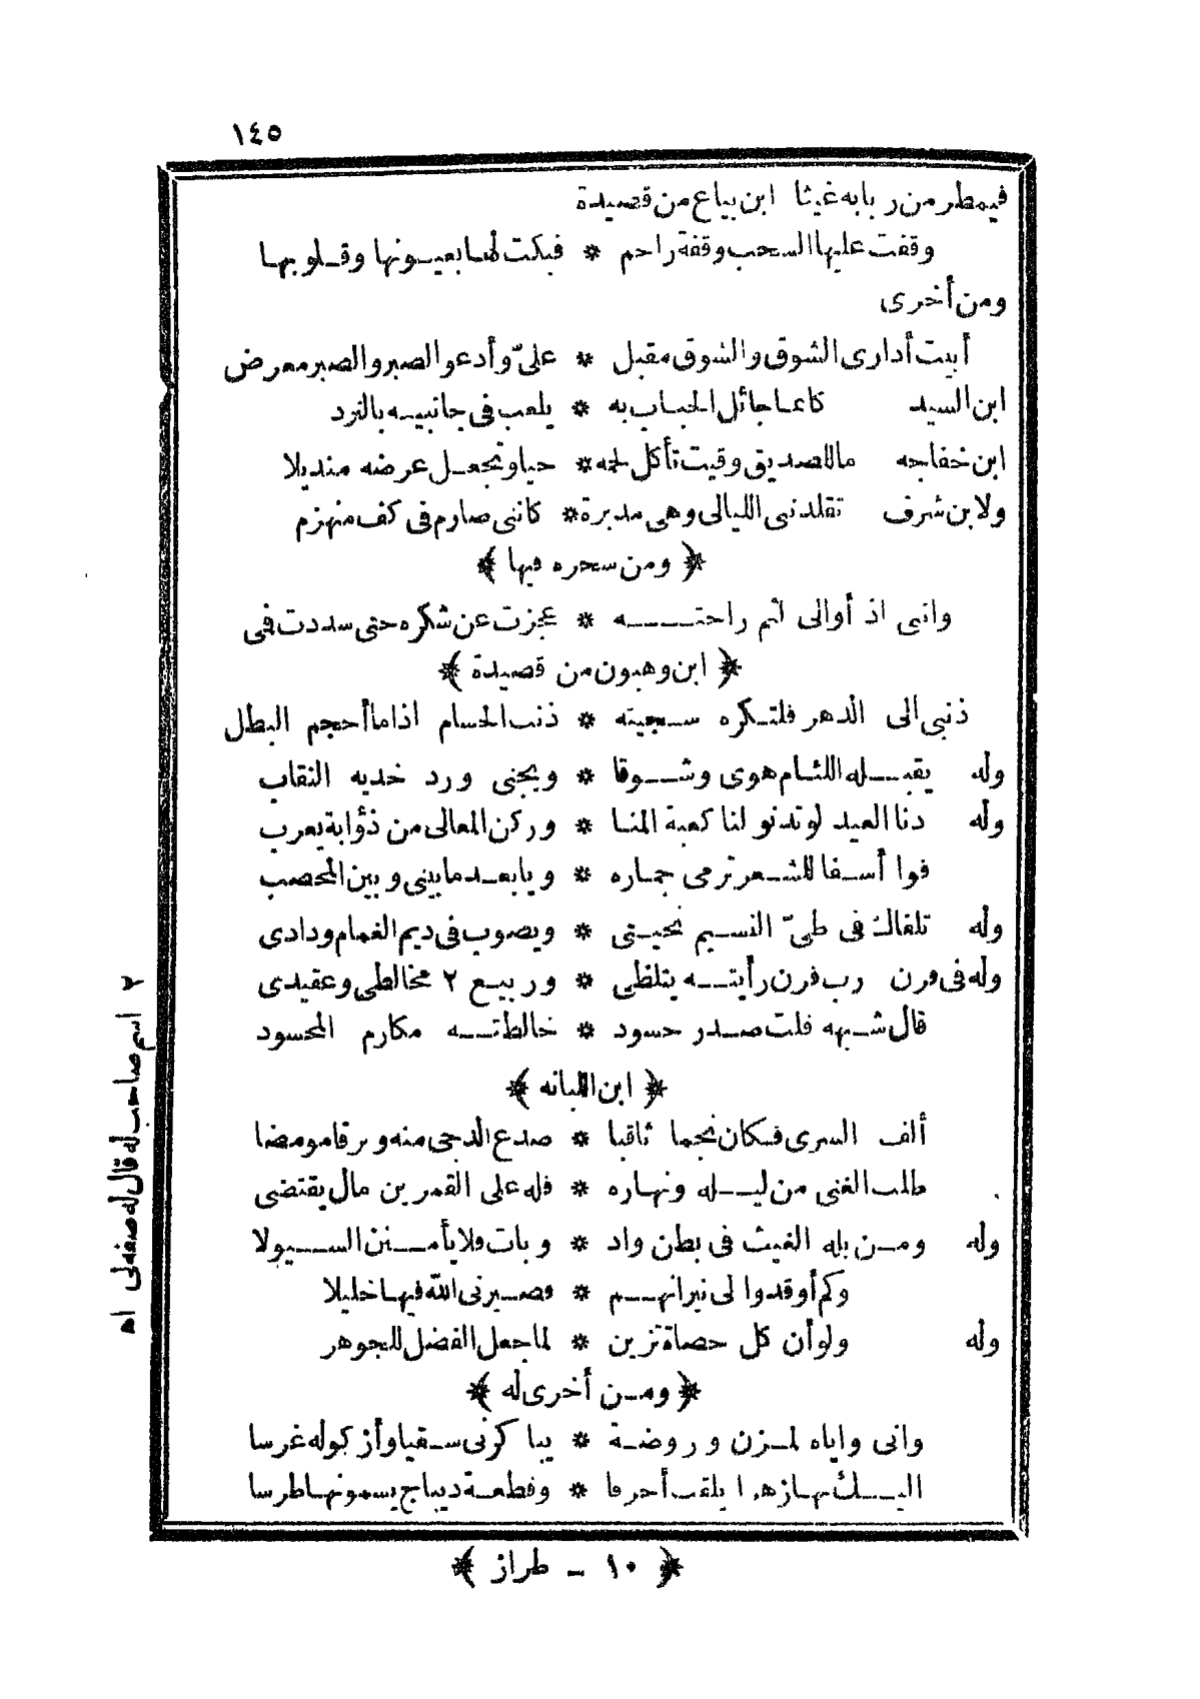 ١٤٥
فيمطر من ربابه غيثا ابن بياع من قصيدة
وقفت عليها السحب وقفة راحم * فبكت لها بعيونها وقلوبها
ومن أخرى
أبيت أدارى الشوق والشوق مقبل * علىّ وأدعو الصبر والصبر معرض
ابن السيد كانما جائل الحباب به * يلعب فى جانبيه بالنرد
ابن خفاجه ماللصديق وقيت تأكل لحمه * حيا وتجعل عرضه منديلا
ولابن شرف تقلدنى الليالى وهى مدبرة * كاننى صارم فى كف منهزم
﴿ ومن سحره فيها ﴾
وانى اذ أوالى لثم راحته * عجزت عن شكره حتى سددت فى
﴿ ابن وهبون من قصيدة ﴾
ذنبى الى الدهر فلتكره سجيته * ذنب الحسام اذا ما أحجم البطل
وله يقبله اللثام هوى وشوقا * ويجنى ورد خديه النقاب
وله دنا العيد لو تدنو لنا كعبة المنا * وركن المعالى من ذؤابة يعرب
فوا أسفا للشعر ترمى جماره * ويابعد ما بينى وبين المحصب
وله تلقاك فى طىّ النسيم تحيتى * ويصوب فى ديم الغمام ودادى
وله فى فرن رب فرن رأيته يتلظى * وربيع ٢ مخالطى وعقيدى
قال شبهه قلت صدر حسود * خالطته مكارم المحسود
﴿ ابن اللبانه ﴾
ألف السرى فكان نجما ثاقبا * صدع الدجى منه وبرقا مومضا
طلب الغنى من ليله ونهاره * فله على القمرين مال يقتضى
وله ومن بله الغيث فى بطن واد * وبات فلا يأمنن السيولا
وكم أوقدوا لى نيرانهم * فصيرنى الله فيها خليلا
وله ولو أن كل حصاة تزين * لما جعل الفضل للجوهر
﴿ ومن أخرى له ﴾
وانى واياه لمزن وروضة * يباكرنى سقيا وأزكو له غرسا
اليك بها زهرا يلقب أحرفا * وقطعة ديباج يسمونها طرسا
﴿ ١٠ - طراز ﴾
٢ اسم صاحب له قال له صفه لى اه